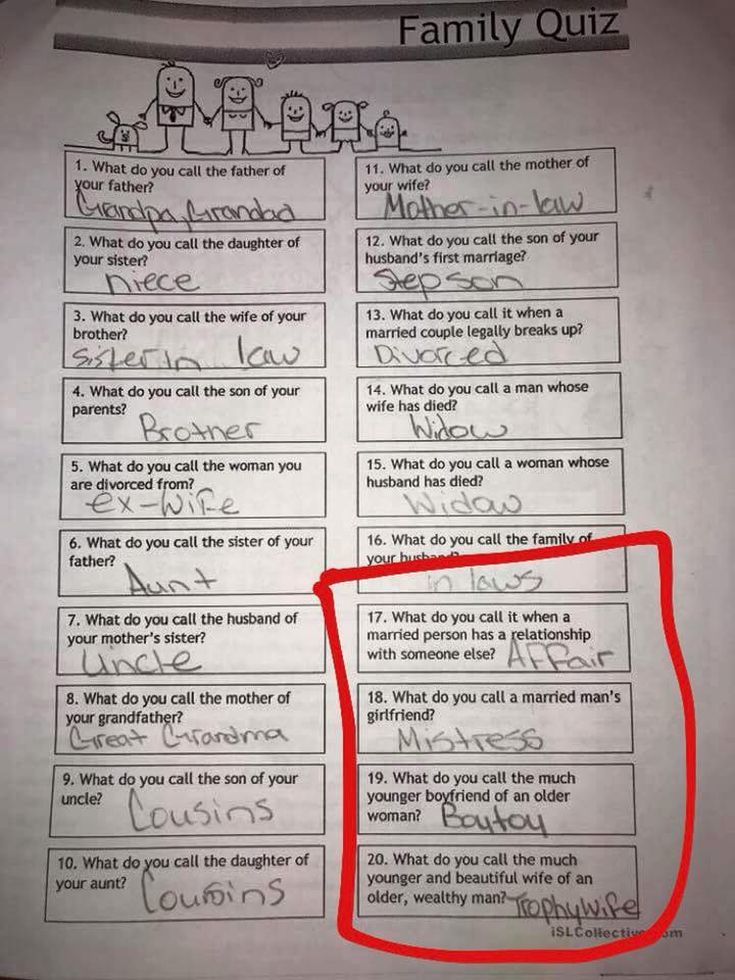 Family Quiz
1. What do you call the father of
your father?
Grandpa, Grandad
2. What do you call the daughter of
your sister?
niece
3. What do you call the wife of your
brother?
Sister in law
4. What do you call the son of your
parents?
Brother
5. What do you call the woman you
are divorced from?
ex-wife
6. What do you call the sister of your
father?
Aunt
7. What do you call the husband of
your mother's sister?
Uncle
8. What do you call the mother of
your grandfather?
Great Grandma
9. What do you call the son of your
uncle? Cousins
10. What do you call the daughter of
your aunt? Cousins
11. What do you call the mother of
your wife?
Mother-in-law
12. What do you call the son of your
husband's first marriage?
Step son
13. What do you call it when a
married couple legally breaks up?
Divorced
14. What do you call a man whose
wife has died?
Widow
15. What do you call a woman whose
husband has died?
Widow
16. What do you call the family of
your husband?
in laws
17. What do you call it when a
married person has a relationship
with someone else? Affair
18. What do you call a married man's
girlfriend?
Mistress
19. What do you call the much
younger boyfriend of an older
woman? Boytoy
20. What do you call the much
younger and beautiful wife of an
older, wealthy man? Trophy wife
iSLCollective.com